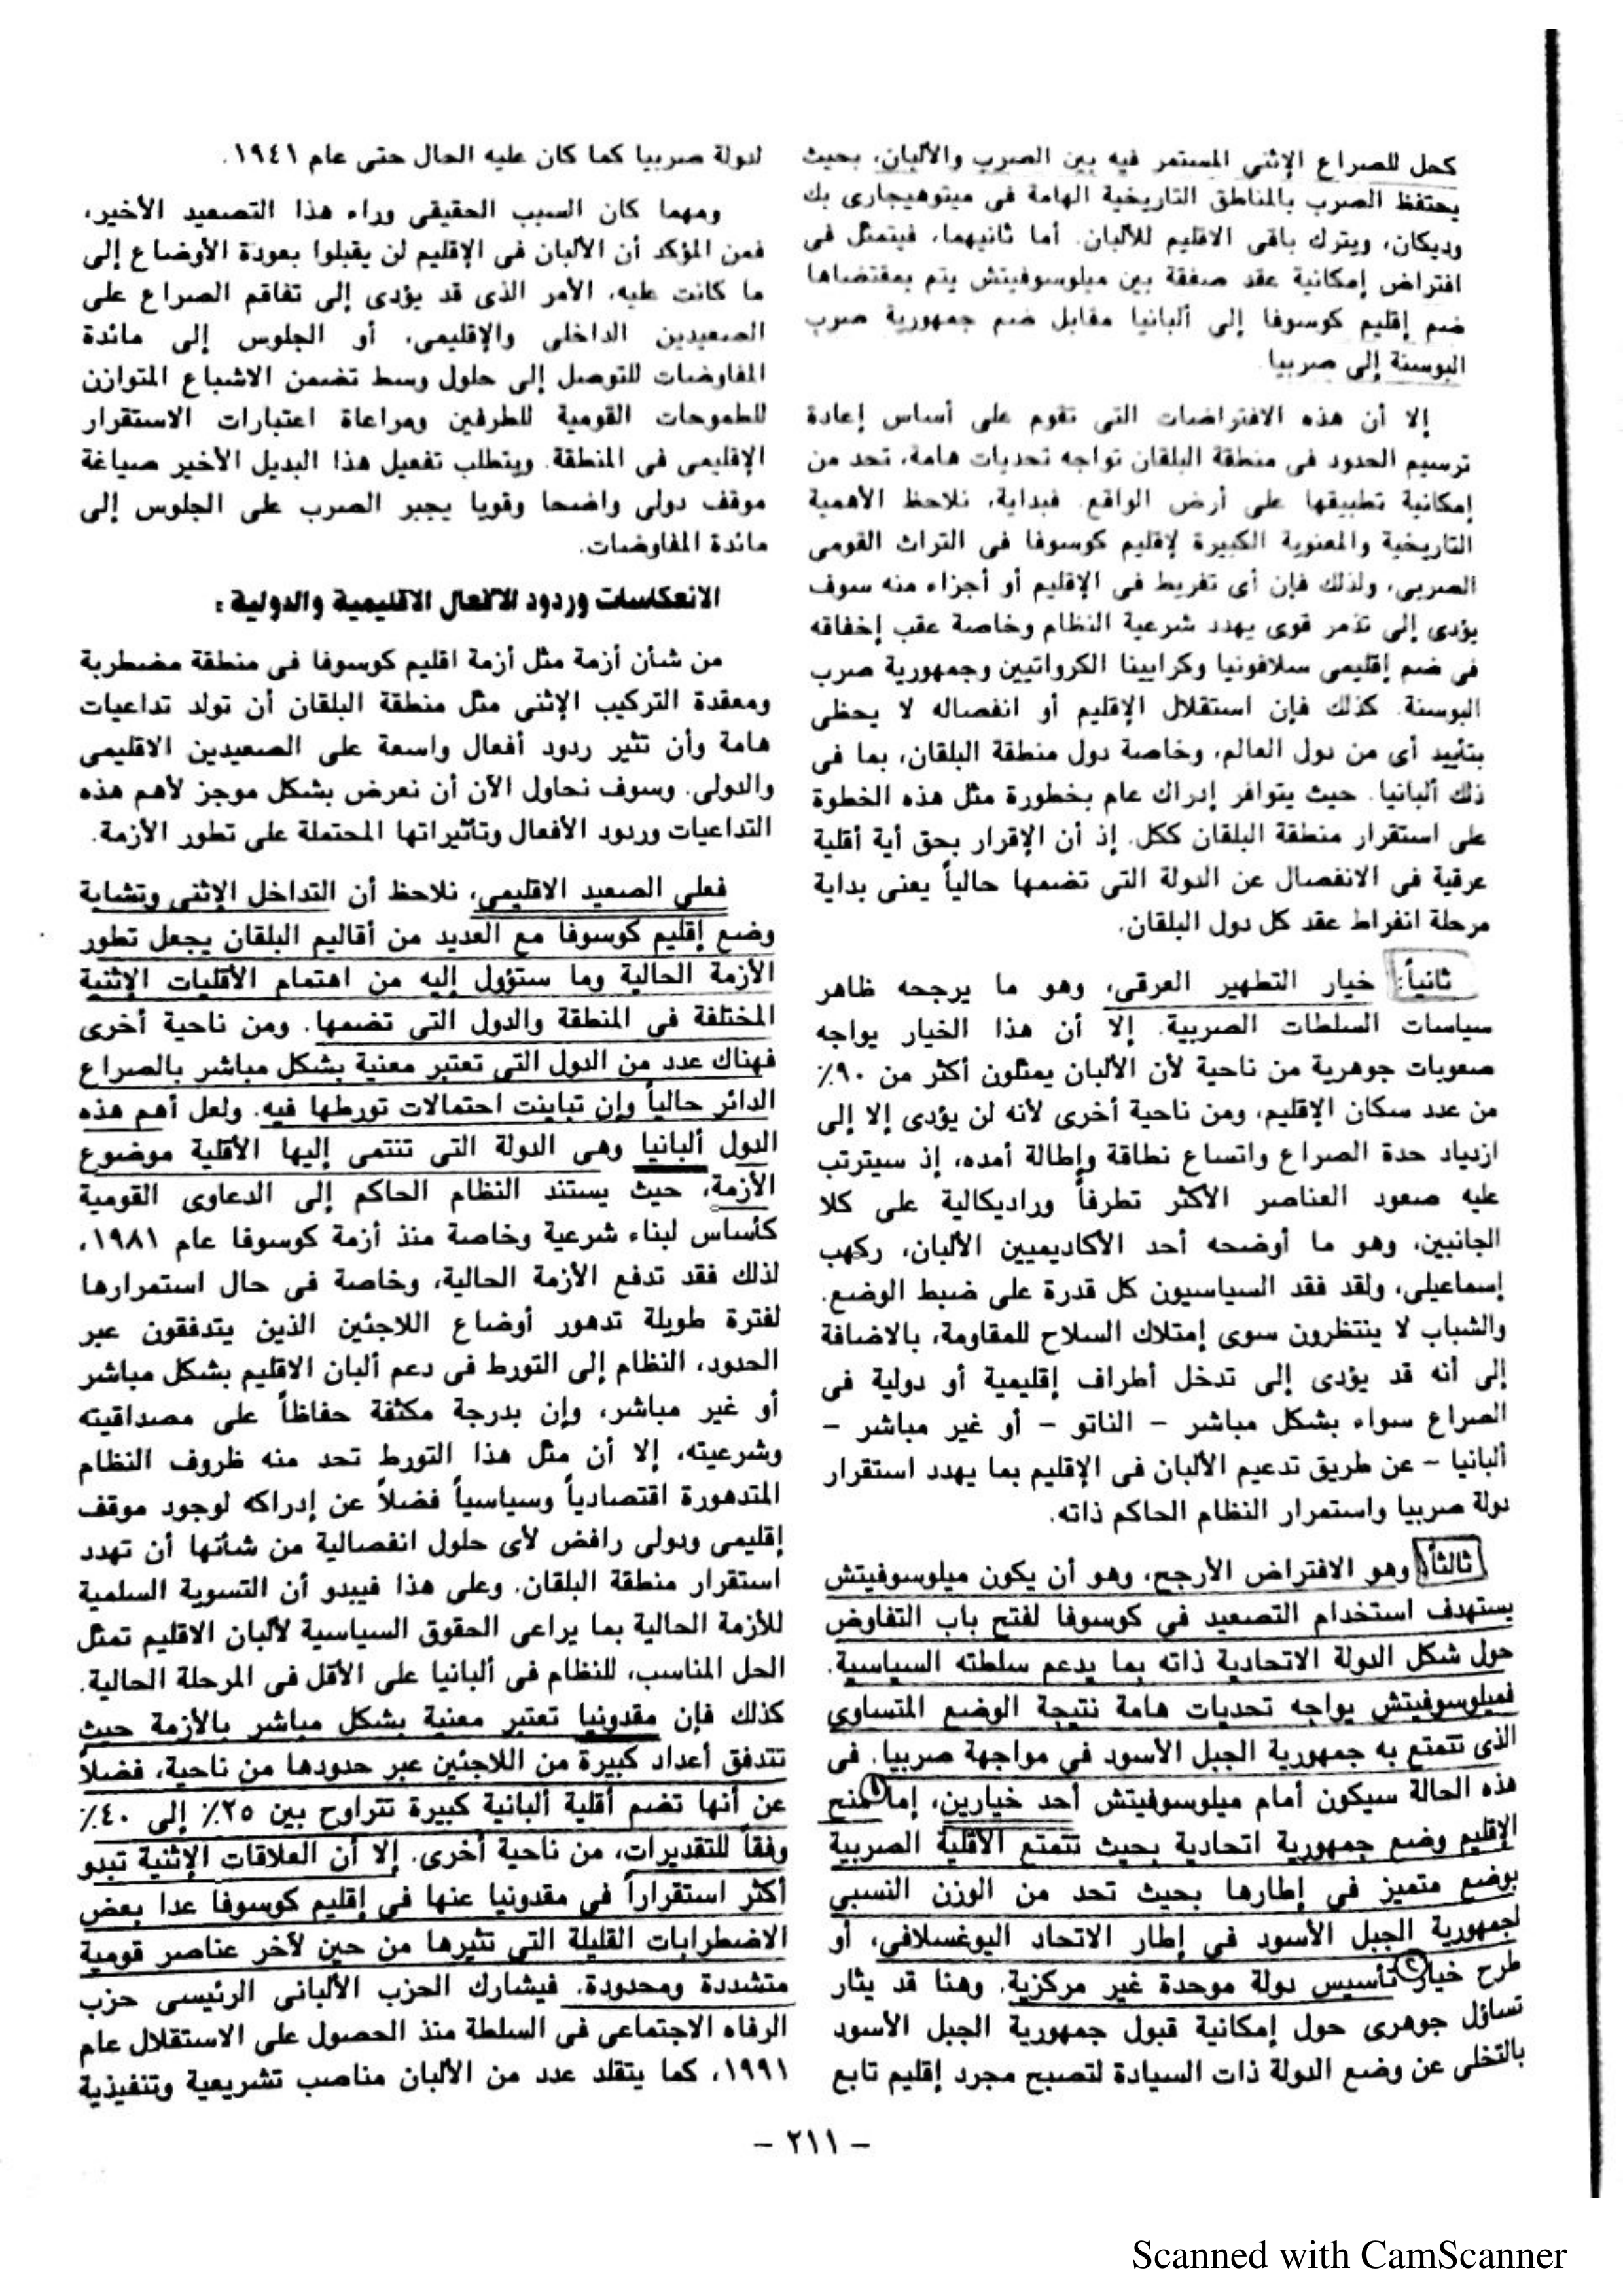 كحل للصراع الإثنى المستمر فيه بين الصرب والألبان، بحيث
يحتفظ الصرب بالمناطق التاريخية الهامة فى ميتوهيجارى بك
وديكان، ويترك باقى الاقليم للألبان. أما ثانيهما، فيتمثل فى
افتراض إمكانية عقد صفقة بين ميلوسوفيتش يتم بمقتضاها
ضم إقليم كوسوفا إلى ألبانيا مقابل ضم جمهورية صرب
البوسنة إلى صربيا.
إلا أن هذه الافتراضات التى تقوم على أساس إعادة
ترسيم الحدود فى منطقة البلقان تواجه تحديات هامة، تحد من
إمكانية تطبيقها على أرض الواقع. فبداية، نلاحظ الأهمية
التاريخية والمعنوية الكبيرة لإقليم كوسوفا فى التراث القومى
الصربى، ولذلك فإن أى تفريط فى الإقليم أو أجزاء منه سوف
يؤدى إلى تذمر قوى يهدد شرعية النظام وخاصة عقب إخفاقه
فى ضم إقليمى سلافونيا وكرايينا الكرواتيين وجمهورية صرب
البوسنة. كذلك فإن استقلال الإقليم أو انفصاله لا يحظى
بتأييد أى من دول العالم، وخاصة دول منطقة البلقان، بما فى
ذلك ألبانيا. حيث يتوافر إدراك عام بخطورة مثل هذه الخطوة
على استقرار منطقة البلقان ككل. إذ أن الإقرار بحق أية أقلية
عرقية فى الانفصال عن الدولة التى تضمها حالياً يعنى بداية
مرحلة انفراط عقد كل دول البلقان.
ثانياً: خيار التطهير العرقى، وهو ما يرجحه ظاهر
سياسات السلطات الصربية. إلا أن هذا الخيار يواجه
صعوبات جوهرية من ناحية لأن الألبان يمثلون أكثر من ٩٠٪
من عدد سكان الإقليم، ومن ناحية أخرى لأنه لن يؤدى إلا إلى
ازدياد حدة الصراع واتساع نطاقة وإطالة أمده، إذ سيترتب
عليه صعود العناصر الأكثر تطرفاً وراديكالية على كلا
الجانبين، وهو ما أوضحه أحد الأكاديميين الألبان، ركهب
إسماعيلى، ولقد فقد السياسيون كل قدرة على ضبط الوضع.
والشباب لا ينتظرون سوى إمتلاك السلاح للمقاومة، بالاضافة
إلى أنه قد يؤدى إلى تدخل أطراف إقليمية أو دولية فى
الصراع سواء بشكل مباشر – الناتو – أو غير مباشر –
ألبانيا – عن طريق تدعيم الألبان فى الإقليم بما يهدد استقرار
دولة صربيا واستمرار النظام الحاكم ذاته.
ثالثاً: وهو الافتراض الأرجح، وهو أن يكون ميلوسوفيتش
يستهدف استخدام التصعيد فى كوسوفا لفتح باب التفاوض
حول شكل الدولة الاتحادية ذاته بما يدعم سلطته السياسية.
فميلوسوفيتش يواجه تحديات هامة نتيجة الوضع المتساوى
الذى تتمتع به جمهورية الجبل الأسود فى مواجهة صربيا. فى
هذه الحالة سيكون أمام ميلوسوفيتش أحد خيارين، إما ١ منح
الإقليم وضع جمهورية اتحادية بحيث تتمتع الأقلية الصربية
بوضع متميز فى إطارها بحيث تحد من الوزن النسبى
لجمهورية الجبل الأسود فى إطار الاتحاد اليوغسلافى، أو
طرح خيار ٢ تأسيس دولة موحدة غير مركزية. وهنا قد يثار
تساؤل جوهرى حول إمكانية قبول جمهورية الجبل الأسود
بالتخلى عن وضع الدولة ذات السيادة لتصبح مجرد إقليم تابع
لدولة صربيا كما كان عليه الحال حتى عام ١٩٤١.
ومهما كان السبب الحقيقى وراء هذا التصعيد الأخير،
فمن المؤكد أن الألبان فى الإقليم لن يقبلوا بعودة الأوضاع إلى
ما كانت عليه، الأمر الذى قد يؤدى إلى تفاقم الصراع على
الصعيدين الداخلى والإقليمى، أو الجلوس إلى مائدة
المفاوضات للتوصل إلى حلول وسط تضمن الاشباع المتوازن
للطموحات القومية للطرفين ومراعاة اعتبارات الاستقرار
الإقليمى فى المنطقة. ويتطلب تفعيل هذا البديل الأخير صياغة
موقف دولى واضحا وقويا يجبر الصرب على الجلوس إلى
مائدة المفاوضات.
الانعكاسات وردود الافعال الاقليمية والدولية :
من شأن أزمة مثل أزمة اقليم كوسوفا فى منطقة مضطربة
ومعقدة التركيب الإثنى مثل منطقة البلقان أن تولد تداعيات
هامة وأن تثير ردود أفعال واسعة على الصعيدين الاقليمى
والدولى. وسوف نحاول الآن أن نعرض بشكل موجز لأهم هذه
التداعيات وردود الأفعال وتأثيراتها المحتملة على تطور الأزمة.
فعلى الصعيد الاقليمى، نلاحظ أن التداخل الإثنى وتشابة
وضع إقليم كوسوفا مع العديد من أقاليم البلقان يجعل تطور
الأزمة الحالية وما ستؤول إليه من اهتمام الأقليات الإثنية
المختلفة فى المنطقة والدول التى تضمها. ومن ناحية أخرى
فهناك عدد من الدول التى تعتبر معنية بشكل مباشر بالصراع
الدائر حالياً وإن تباينت احتمالات تورطها فيه. ولعل أهم هذه
الدول ألبانيا وهى الدولة التى تنتمى إليها الأقلية موضوع
الأزمة، حيث يستند النظام الحاكم إلى الدعاوى القومية
كأساس لبناء شرعية وخاصة منذ أزمة كوسوفا عام ١٩٨١،
لذلك فقد تدفع الأزمة الحالية، وخاصة فى حال استمرارها
لفترة طويلة تدهور أوضاع اللاجئين الذين يتدفقون عبر
الحدود، النظام إلى التورط فى دعم ألبان الاقليم بشكل مباشر
أو غير مباشر، وإن بدرجة مكثفة حفاظاً على مصداقيته
وشرعيته، إلا أن مثل هذا التورط تحد منه ظروف النظام
المتدهورة اقتصادياً وسياسياً فضلاً عن إدراكه لوجود موقف
إقليمى ودولى رافض لأى حلول انفصالية من شأنها أن تهدد
استقرار منطقة البلقان. وعلى هذا فيبدو أن التسوية السلمية
للأزمة الحالية بما يراعى الحقوق السياسية لألبان الاقليم تمثل
الحل المناسب، للنظام فى ألبانيا على الأقل فى المرحلة الحالية.
كذلك فإن مقدونيا تعتبر معنية بشكل مباشر بالأزمة حيث
تتدفق أعداد كبيرة من اللاجئين عبر حدودها من ناحية، فضلاً
عن أنها تضم أقلية ألبانية كبيرة تتراوح بين ٢٥٪ إلى ٤٠٪
وفقاً للتقديرات، من ناحية أخرى. إلا أن العلاقات الإثنية تبدو
أكثر استقراراً فى مقدونيا عنها فى إقليم كوسوفا عدا بعض
الاضطرابات القليلة التى تثيرها من حين لآخر عناصر قومية
متشددة ومحدودة. فيشارك الحزب الألبانى الرئيسى حزب
الرفاه الاجتماعى فى السلطة منذ الحصول على الاستقلال عام
١٩٩١، كما يتقلد عدد من الألبان مناصب تشريعية وتنفيذية
– ٢١١ –
Scanned with CamScanner